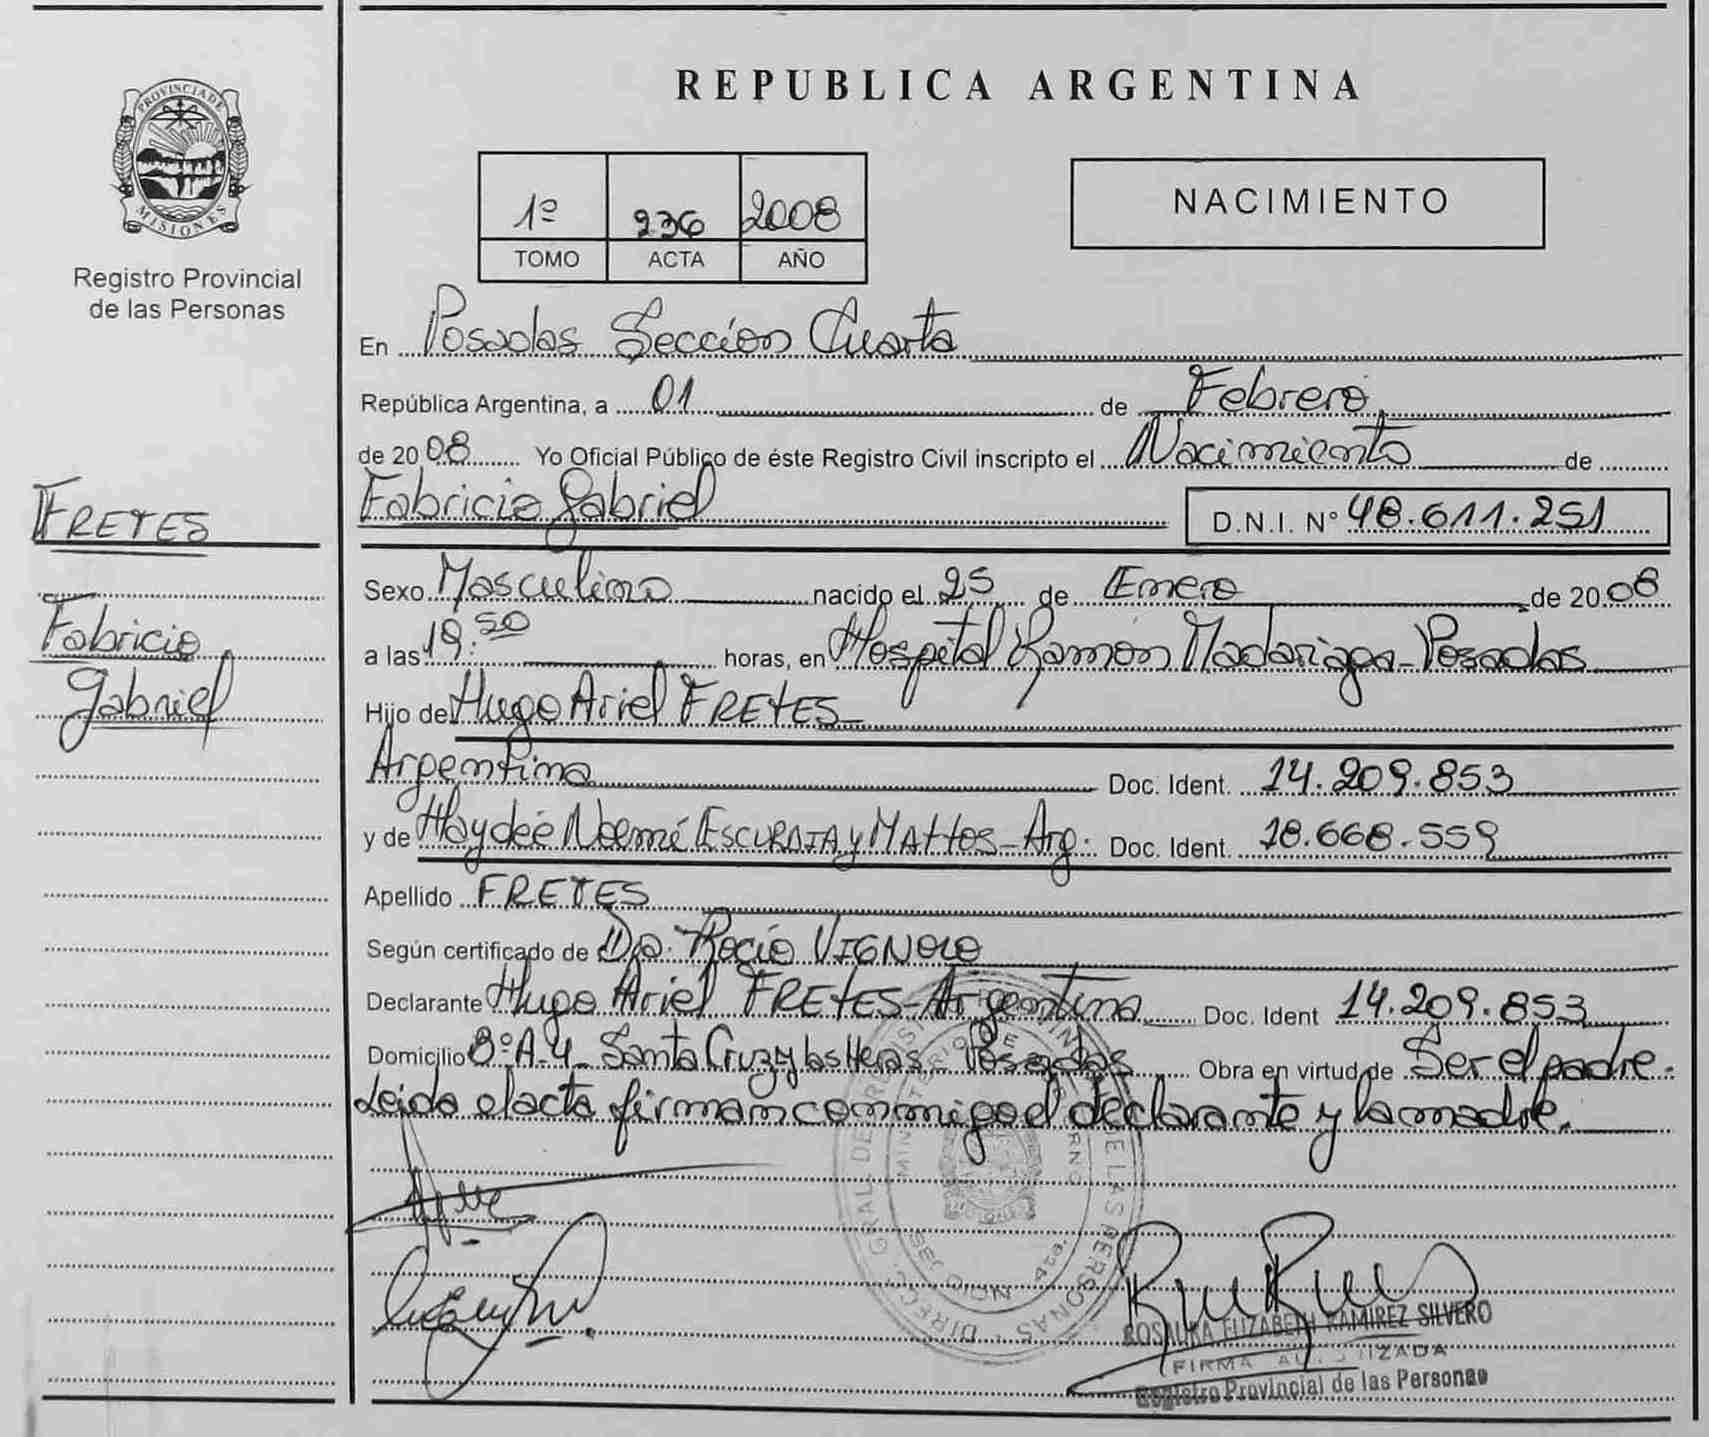 PROVINCIA DE
MISIONES
Registro Provincial
de las Personas
FRETES
Fabricio
Gabriel
REPUBLICA ARGENTINA
1º 236 2008
TOMO ACTA AÑO
NACIMIENTO
En Posadas Sección Cuarta
República Argentina, a 01 de Febrero
de 2008 Yo Oficial Público de éste Registro Civil inscripto el Nacimiento de
Fabricio Gabriel D.N.I. Nº 48.611.251
Sexo Masculino nacido el 25 de Enero de 2008
a las 19:50 horas, en Hospital Ramón Madariaga - Posadas
Hijo de Hugo Ariel FRETES
Argentina Doc. Ident. 14.209.853
y de Haydée Noemí ESCURAIA y MATTOS - Arg. Doc. Ident. 18.668.559
Apellido FRETES
Según certificado de Dra. Rocío VIGNOLO
Declarante Hugo Ariel FRETES - Argentina Doc. Ident 14.209.853
Domicilio 8º A-4 Santa Cruz y las Heras Posadas Obra en virtud de Ser el padre.
Leida el acta firman conmigo el declarante y la madre.
ROSAURA ELIZABETH RAMIREZ SILVERO
FIRMA AUTORIZADA
Registro Provincial de las Personas